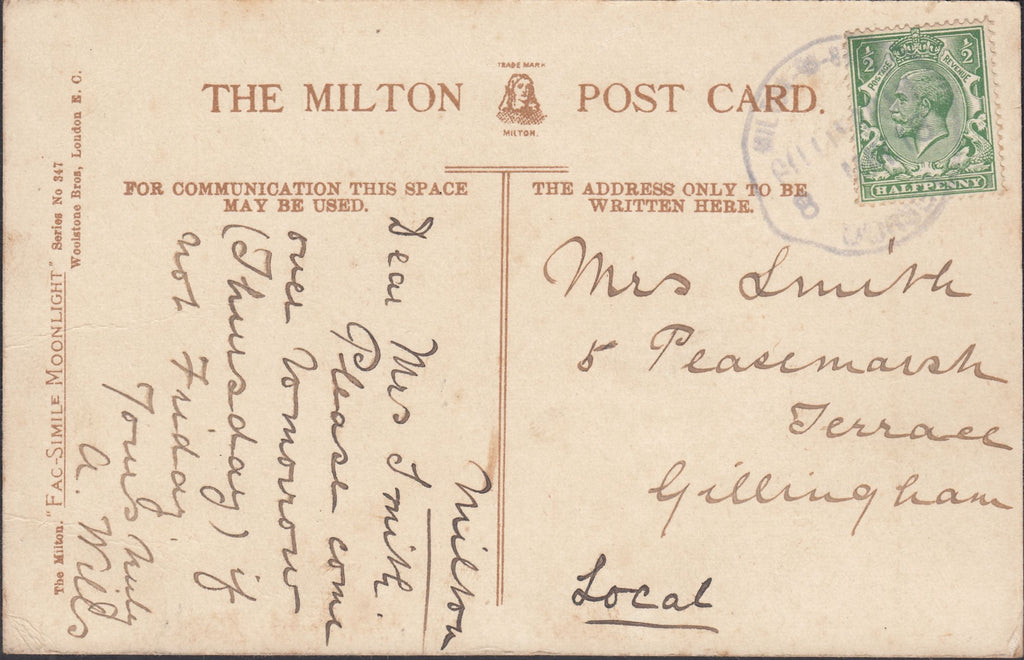 THE MILTON POST CARD.
TRADE MARK
MILTON.
FOR COMMUNICATION THIS SPACE
MAY BE USED.
THE ADDRESS ONLY TO BE
WRITTEN HERE.
The Milton. "FAC-SIMILE MOONLIGHT" Series No 347
Woolstone Bros, London E. C.
Milton
Dear Mrs Smith.
Please come
over tomorrow
(Thursday) if
not Friday
Yours truly
A. Wills
½ ½
POSTAGE REVENUE
HALFPENNY
Mrs Smith
5 Peasemarsh
Terrace
Gillingham
Local